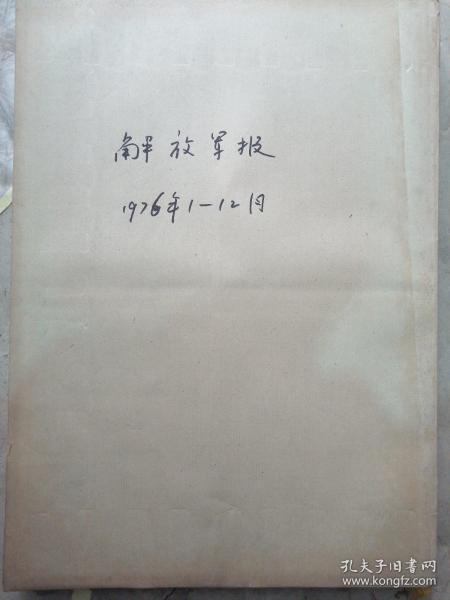 解放军报
1976年1-12月
孔夫子旧书网
www.kongfz.com